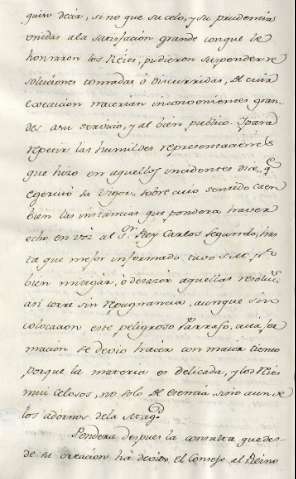 quiso decir, sino que su celo, y su prudencia
unidas a la satisfacion grande conque le
honrraron los Reies, pudieron suspender re
soluciones tomadas ò discurridas, de cuia
execucion nacerian inconvenientes gran
des a su servicio, y al bien publico. I para
repetir las humildes representaciones
que hizo en aquellos incidentes dice, q.
exerció su vigor, sobre cuio sentido caen
bien las instancias que pondera haver
echo en voz al S.r Rey Carlos segundo, has
ta que mejor informado tuvo S.M. p.r
bien mitigar, ò desacer aquellas resoluc.s
asi corre sin repugnancia, aunque sin
colocacion este peligroso Parrafo, cuia for
macion se devio hacer con maior tiento
porque la materia es delicada, y los Reies
mui celosos, no solo de esencia sino aun de
los adornos de la Mag.d
Pondera despues la consulta que des
de su creacion ha devido el Consejo al Reino